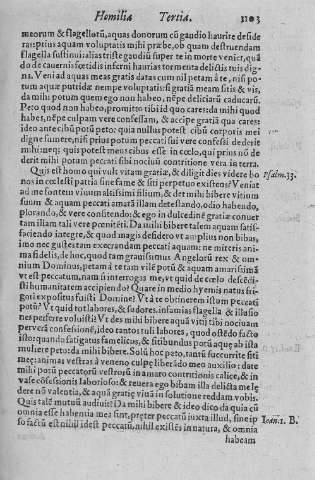 Homilia Tertia. 3103
meorum & flagellorũ, aquas donorum cũ gaudio haurire deside
ras: prius aquam voluptatis mihi præbe, ob quam destruendam
flagella sustinui: alias triste gaudiũ super te in morte venict, quã
do de cauernis fœtidis inferni haurias tormenta delictis tuis dig-
na. Veni ad aquas meas gratis datas cum nil petam à te, nisi po-
tum aquæ putridæ nempe voluptatis: si gratiã meam sitis & vis,
da mihi potum quem ego non habeo, nẽpe diliciarũ caducarũ.
Pete quod non habeo, promitto tibi id quo cares: da mihi quod
habes, nẽpe culpam vere confessam, & accipe gratiã qua cares:
ideo ante cibũ potũ peto: quia nullus potest cibũ corporis mei
digne sumere, nisi prius potum peccati sui vere confessi dederit
mihi: neq; quis potest meus cibus esse in cœlo, qui prius nõ de
derit mihi potum peccati sibi nociuũ contritione vera in terra.
Quis est homo qui vult vitam gratiæ, & diligit dies videre bo Psalm. 33.
nos in cœlesti patria sine fame & siti perpetuo existens? Veniat
ad me fontem viuum altissimi filium, & det mihi bibere vitium
suum & aquam peccati amarã illam detestando, odio habendo,
plorando, & vere confitendo: & ego in dulcedinẽ gratiæ conuer
tam illam tali vere pœnitẽti. Da mihi bibere talem aquam satis-
faciendo integre, & quod magis desidero vt amplius non bibas,
imo nec gustes tam execrandam peccati aquam: ne miteris ani-
ma fidelis, de hoc, quod tam grauissimus Angelorũ rex & om-
nium Dominus, petam à te tam vile potũ & aquam amarissimã
vt est peccatum, nam si interrogas me, vt quid de cœlo descẽdi-
sti humanitatem accipiendo? Quare in medio hyemis natus fri-
gori expositus fuisti Domine? Vt à te obtinerem istum peccati
potũ? Vt quid tot labores, & sudores, infamias flagella & illusio
nes perferre voluisti? Vt des mihi bibere aquã vitij tibi nociuam
per verã confessionẽ, ideo tantos tuli labores, quod ostẽdo facto
isto: quando fatigatus famelicus, & sitibundus potũ aquæ ab ista
muliere peto: da mihi bibere. Solũ hoc peto, tantũ succurrite siti
meæ: animas vestras à veneno culpę liberãdo meo auxilio: date
mihi potũ peccatorũ vestrorũ in amaro contritionis calice, & in
vase cõfessionis laborioso: & reuera ego bibam illa delicta mele
dere nõ valentia, & aquã gratię viuã in solutione reddam vobis.
Quis talẽ mutuũ audiuit? Da mihi bibere & ideo dico da quia cũ
omnia esse habentia mea sint, pręter peccatũ iuxta illud, sine ip Ioan. 1. B.
so factũ est nihil id est peccatũ, nihil existẽs in natura, & omnia
habeam